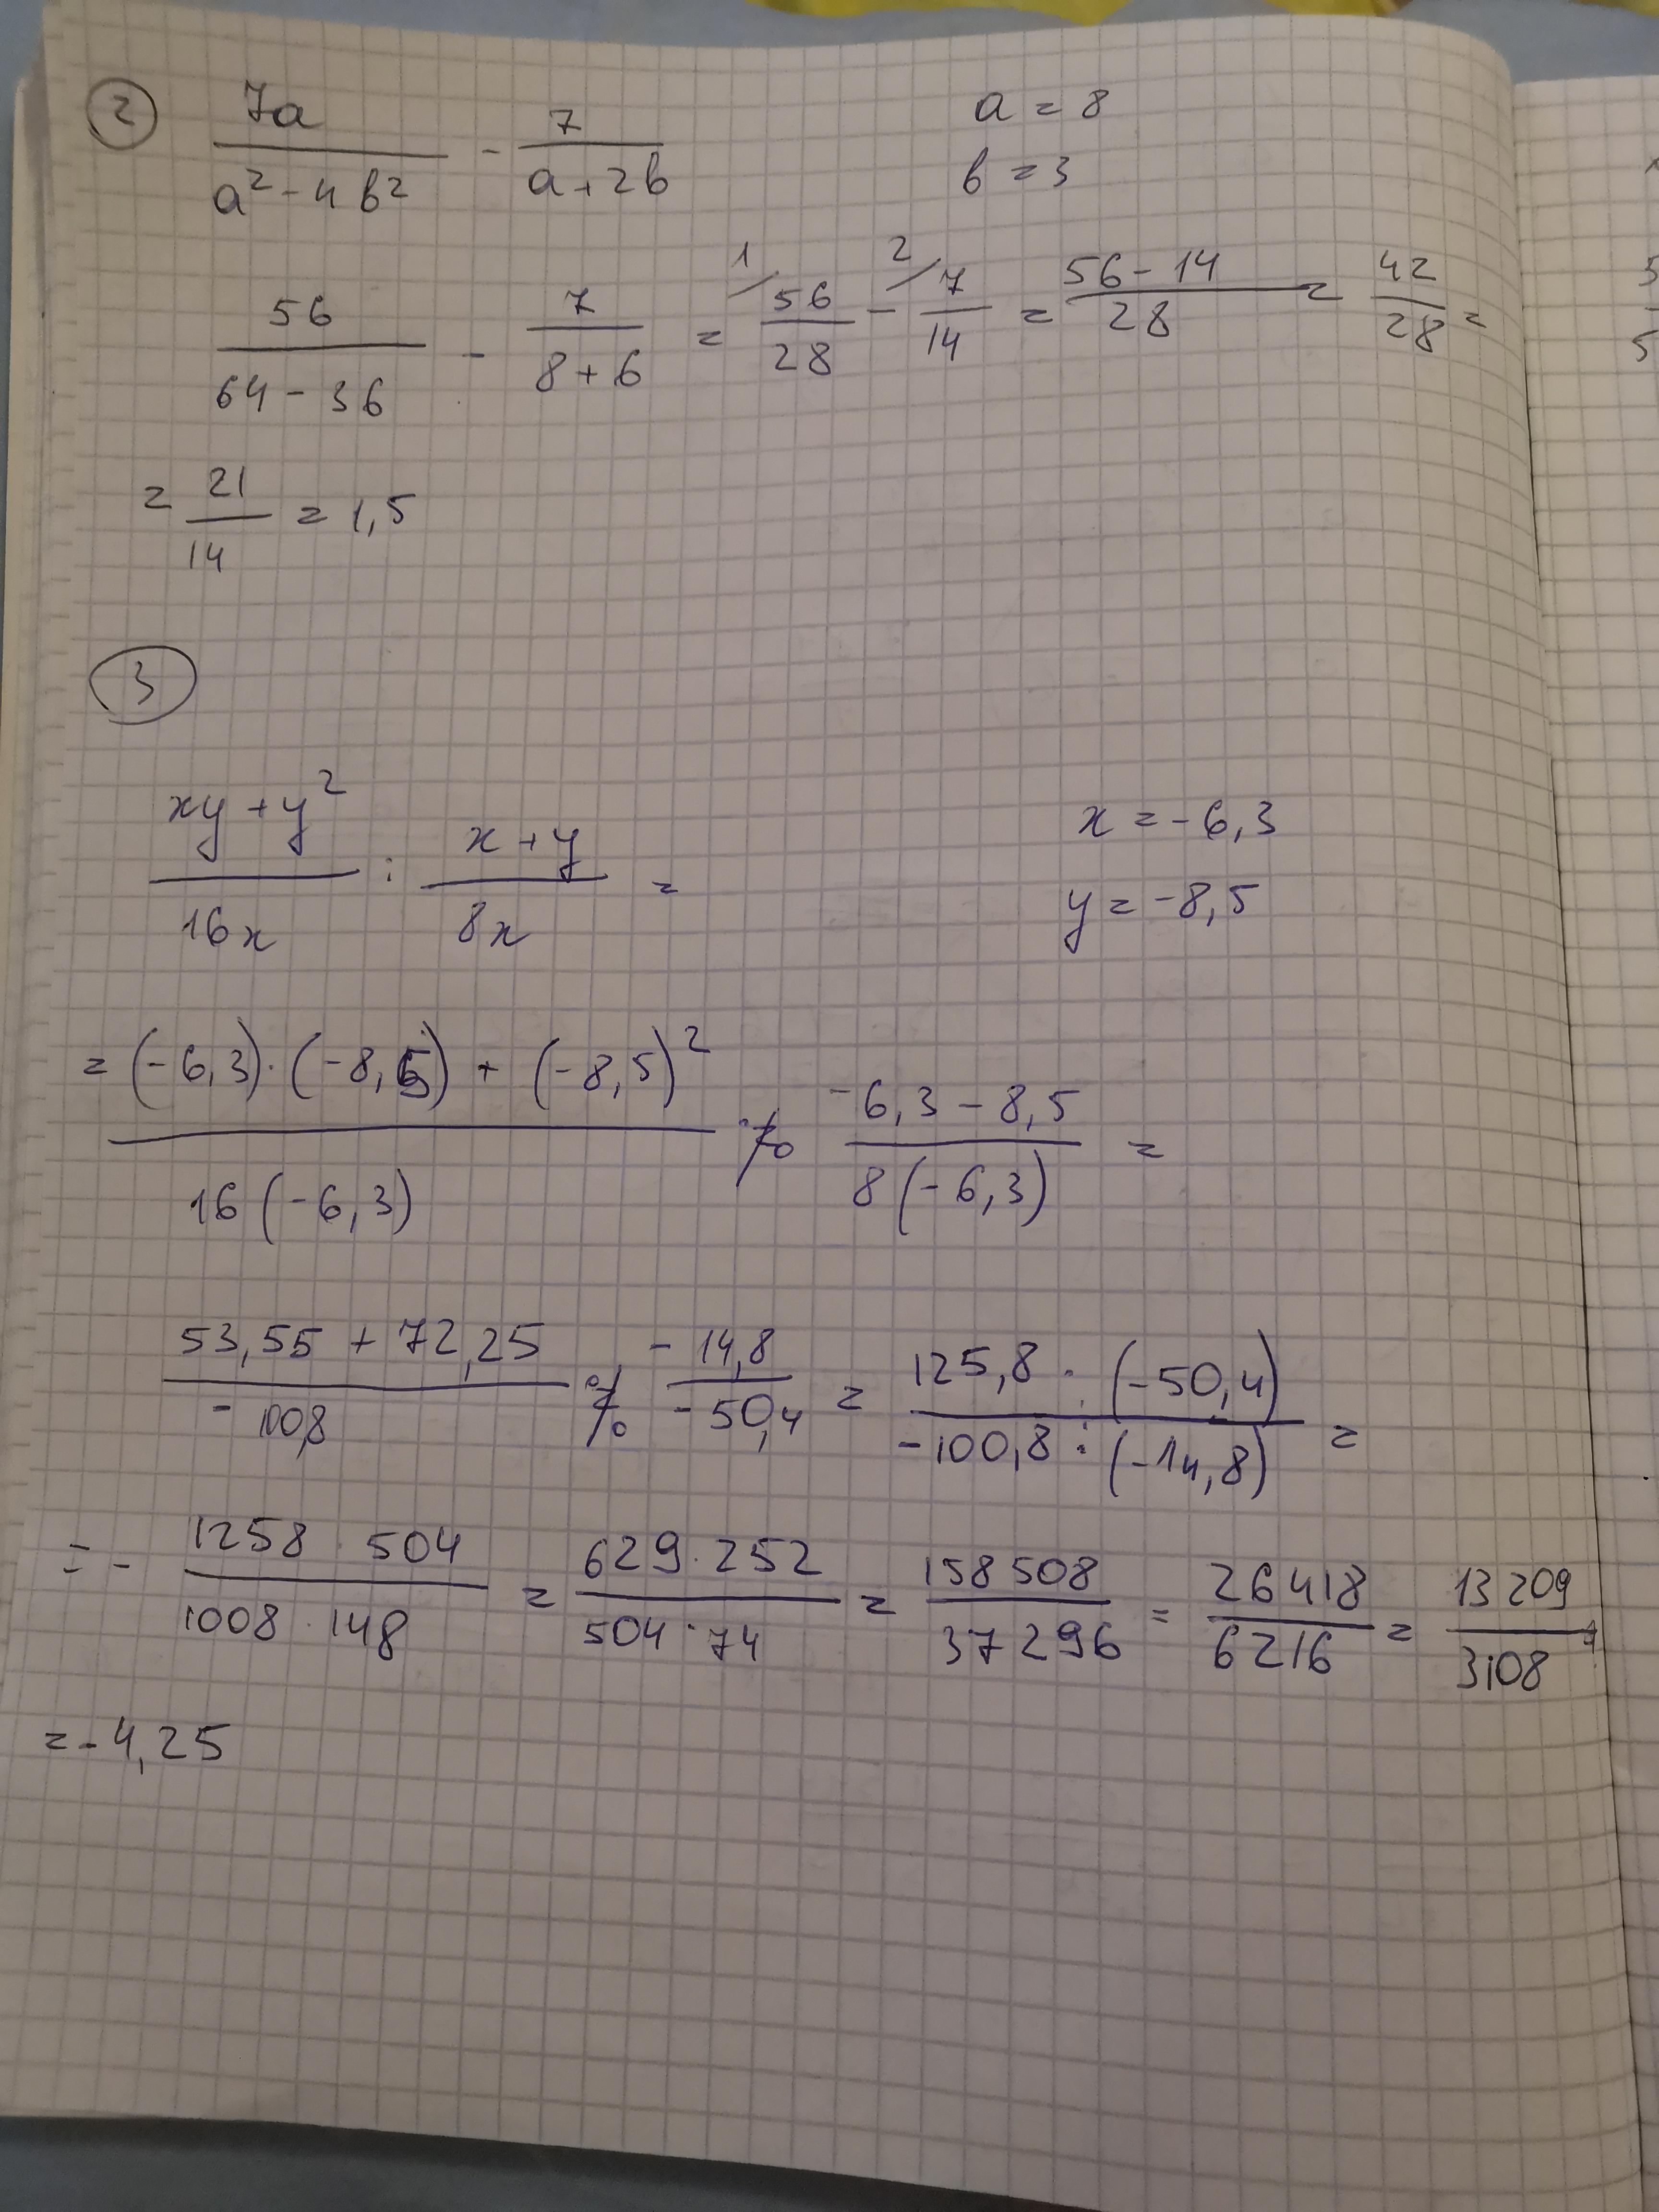 2 7a/(a² - 4b²) - 7/(a + 2b) a = 8
b = 3
56/(64 - 36) - 7/(8 + 6) = 1/ 56/28 - 2/ 7/14 = (56 - 14)/28 = 42/28 =
= 21/14 = 1,5
3
(xy + y²)/16x : (x + y)/8x = x = -6,3
y = -8,5
= ((-6,3)·(-8,5) + (-8,5)²)/(16(-6,3)) : (-6,3 - 8,5)/(8(-6,3)) =
(53,55 + 72,25)/(-100,8) : (-14,8)/(-50,4) = (125,8 · (-50,4))/(-100,8 · (-14,8)) =
= - (1258 · 504)/(1008 · 148) = (629 · 252)/(504 · 74) = 158508/37296 = 26418/6216 = 13209/3108 =
= -4,25